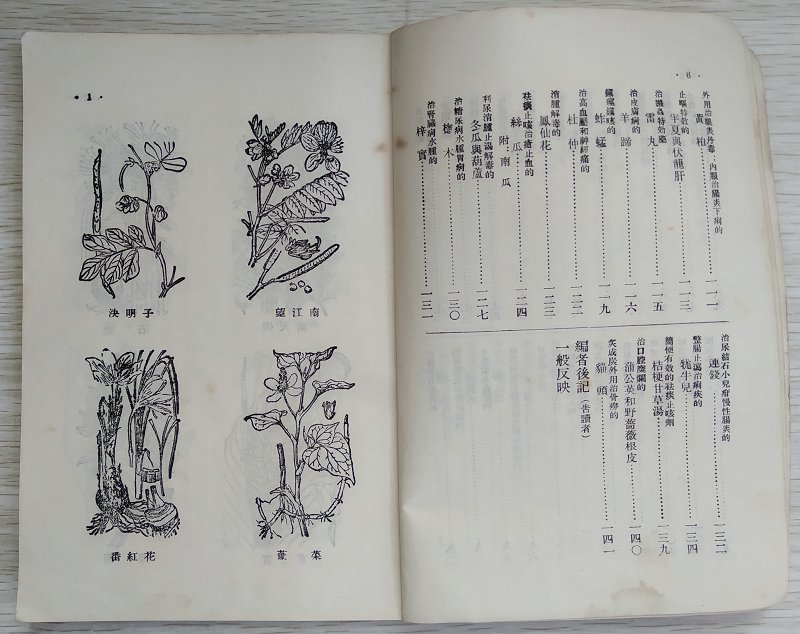 · 6 ·
外用治臟炎丹毒；內服治腸炎下痢的
黃柏……一一一
止嘔特效的
半夏與伏龍肝……一一三
治縧蟲特効藥
雷丸……一一五
治皮膚病的
羊蹄……一一六
鎮癇鎮咳的
蚱蜢……一一九
治高血壓和神經痛的
杜仲……一二二
消腫解毒的
鳳仙花……一二三
祛痰止咳治瘧止血的
絲瓜……一二四
附南瓜
利尿消腫止渴解毒的
冬瓜與葫蘆……一二七
治糖尿病水腫胃病的
楤木……一三〇
治腎臟病水腫的
梓實……一三一
治尿結石小兒疳慢性腸炎的
連錢……一三二
整腸止瀉治痢疾的
牻牛兒……一三四
簡便有效的祛痰止咳劑
桔梗甘草湯……一三九
治口腔糜爛的
蒲公英和野薔薇根皮……一四〇
炙成炭外用治骨疼的
貓頭……一四一
編者後記（告讀者）
一般反映
· 1 ·
望江南
決明子
蕺菜
番紅花